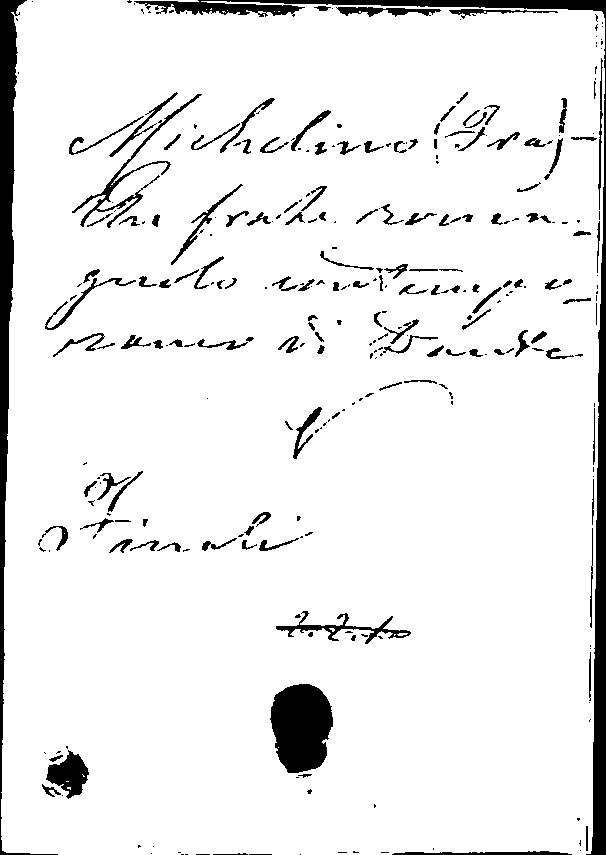 Michelino (Fra) -
Un frate roma-
gnolo contempo-
raneo di Dante
V
Finali
2.2.10